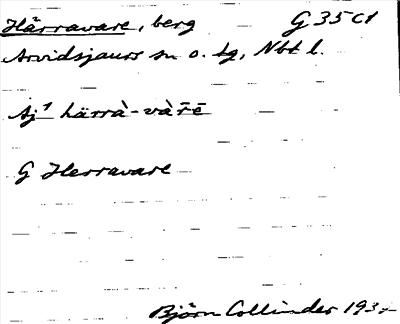 Härravare, berg G 35 c1
Arvidsjaurs sn o. tg, Nbt l.
Aj¹ härrà-vàr̄ē
G Herravare
Björn Collinder 193